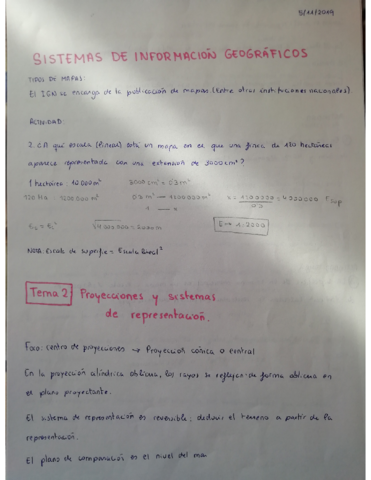 9/11/2019
SISTEMAS DE INFORMACIÓN GEOGRÁFICOS
TIPOS DE MAPAS:
El IGN se encarga de la publicación de mapas (Entre otras instituciones nacionales)
ACTIVIDAD:
2. ¿A qué escala (lineal) está un mapa en el que una finca de 120 hectáreas
aparece representada con una extensión de 3000 cm²?
1 hectárea 10.000 m² 3000 cm² = 0'3 m²
120 Ha 1200.000 m² 0'3 m²
NOTA: Escala de superficie = Escala lineal²
Tema 2 Proyecciones y sistemas
de representación.
Foco: centro de proyecciones → Proyección cónica o central
En la proyección cilíndrica oblicua, los rayos se reflejan de forma oblicua en
el plano proyectante.
El sistema de representación es reversible; deducir el terreno a partir de la
representación.
El plano de comparación es el nivel del mar